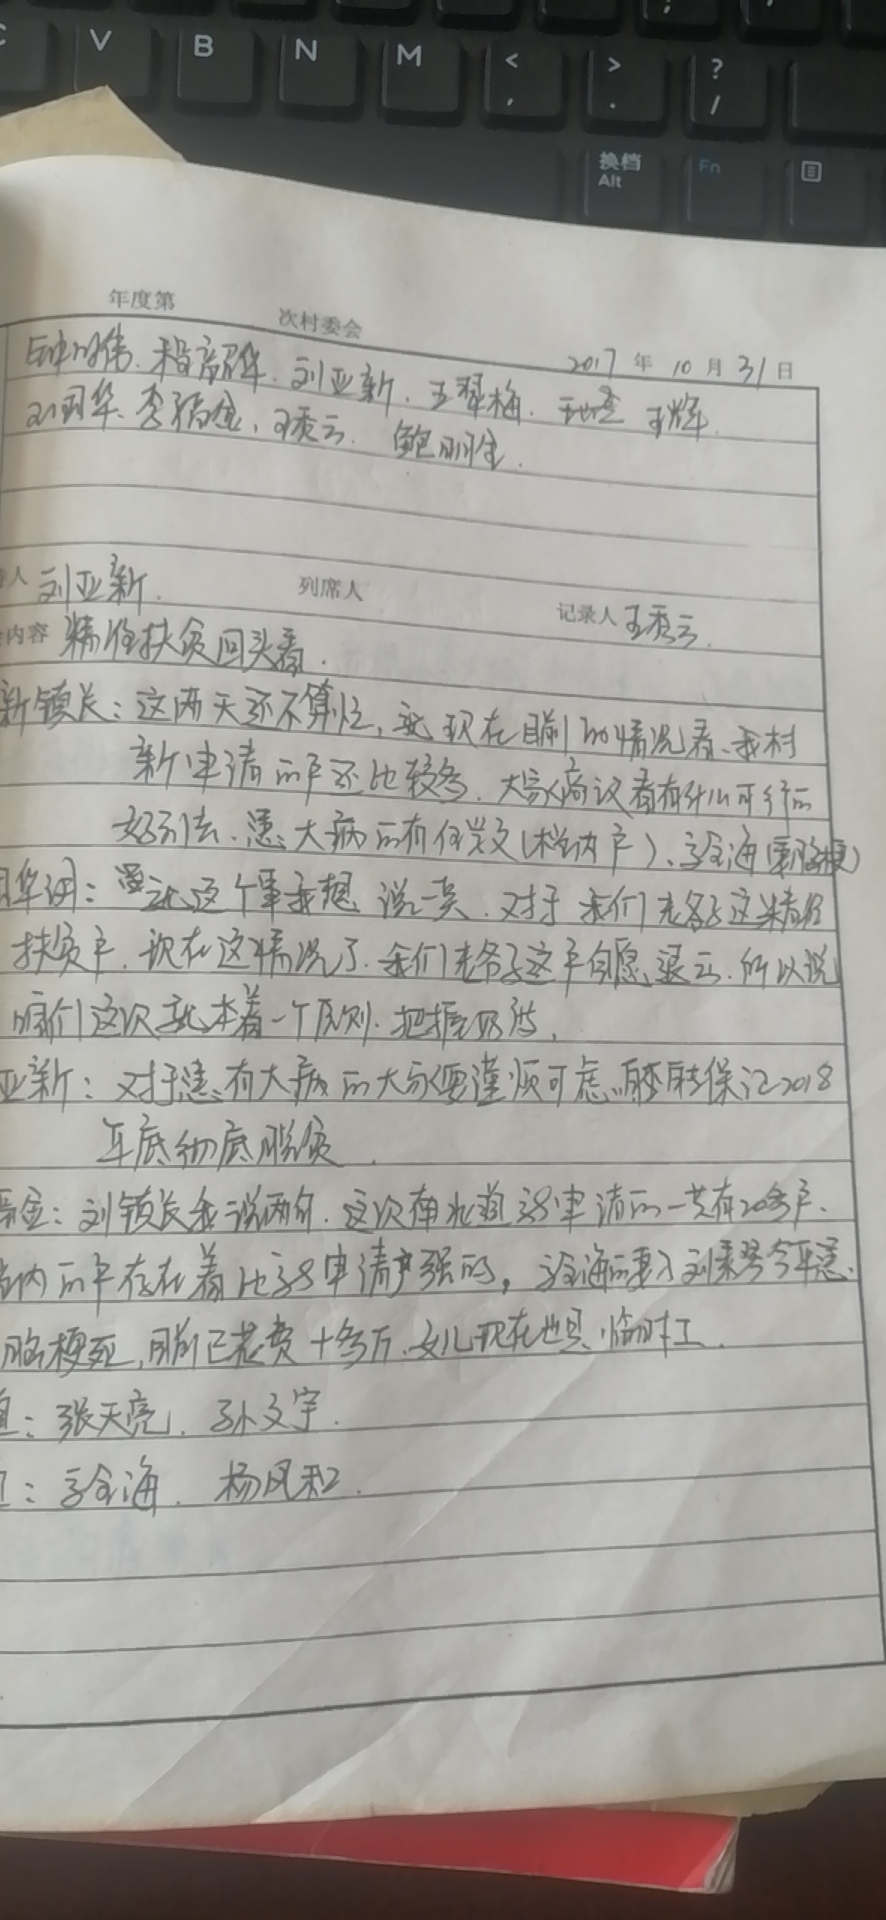 C V B N M < , > . ? /
换档 Alt Fn
年度第 次村委会
2017 年 10 月 31 日
刘亚新. 王翠梅. 王辉.
刘国华. 李福金. 王秀云. 鲍丽
人 刘亚新. 列席人 记录人 王秀云.
内容 精准扶贫回头看.
新镇长: 这两天还不算忙, 就现在目前的情况看、我村
新申请的户还比较多. 大家商议看有什么可行的
好办法. 患大病的有任学文(档内户)、 海
国华词: 这个事我想说一类. 对于我们 这类精准
扶贫户. 现在这情况了. 我们 这户自愿退云. 所以说
咱们这次就本着一个原则. 把握好
亚新: 对于患有大病的大家要谨慎可虑. 保证2018
年底彻底脱贫.
金: 刘镇长我说两句. 这次 申请的一共有20多户.
内的户存在着比 申请户强的, 海的妻子刘 琴今年患
脑梗死, 目前已花费十多万. 女儿现在也是临时工.
: 张天亮. 孙文宇.
: 海. 杨凤和.